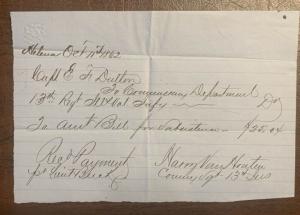 Helena Oct 11th 1862
Capt E F Dutton
To Commissary Department
13th Regt Ills Vol Infy Dr
To Amt Bill for Subsistence $25.04
Recd Payment
Harry Van Houten
Commy Sgt 13th Ills